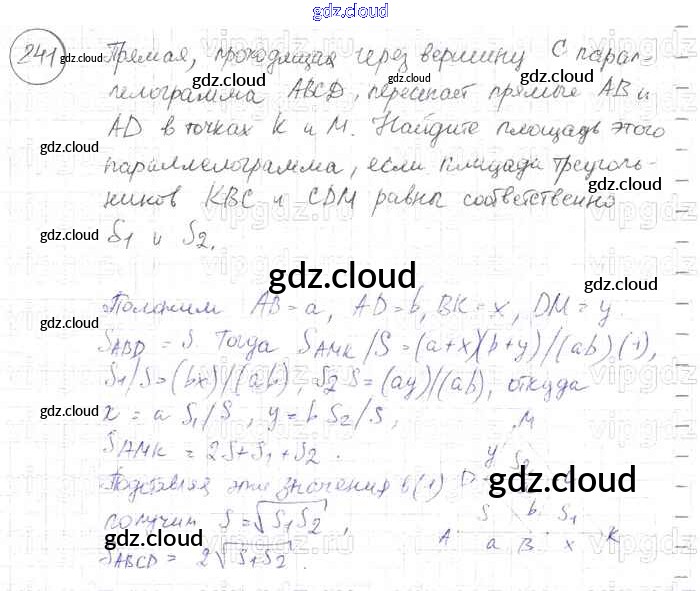 gdz.cloud
241 Прямая, проходящая через вершину C парал-
лелограмма ABCD, пересекает прямые AB и
AD в точках K и M. Найдите площадь этого
параллелограмма, если площади треуголь-
ников KBC и CDM равны соответственно
S1 и S2.
gdz.cloud
Положим AB = a, AD = b, BK = x, DM = y.
SABD = S. Тогда SAMK/S = (a+x)(b+y)/(ab) (1),
S1/S = (bx)/(ab), S2 S = (ay)/(ab), откуда
x = a S1/S, y = b S2/S,
SAMK = 2S+S1+S2.
Подставляя эти значения в (1)
получим S = √S1S2,
SABCD = 2√S1S2.
M
y S2
D b
S b. S1
A a B x K
gdz.cloud